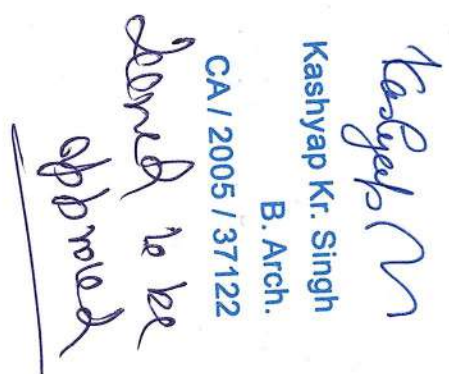 Kashyap
Kashyap Kr. Singh
B. Arch.
CA / 2005 / 37122
to be
approved